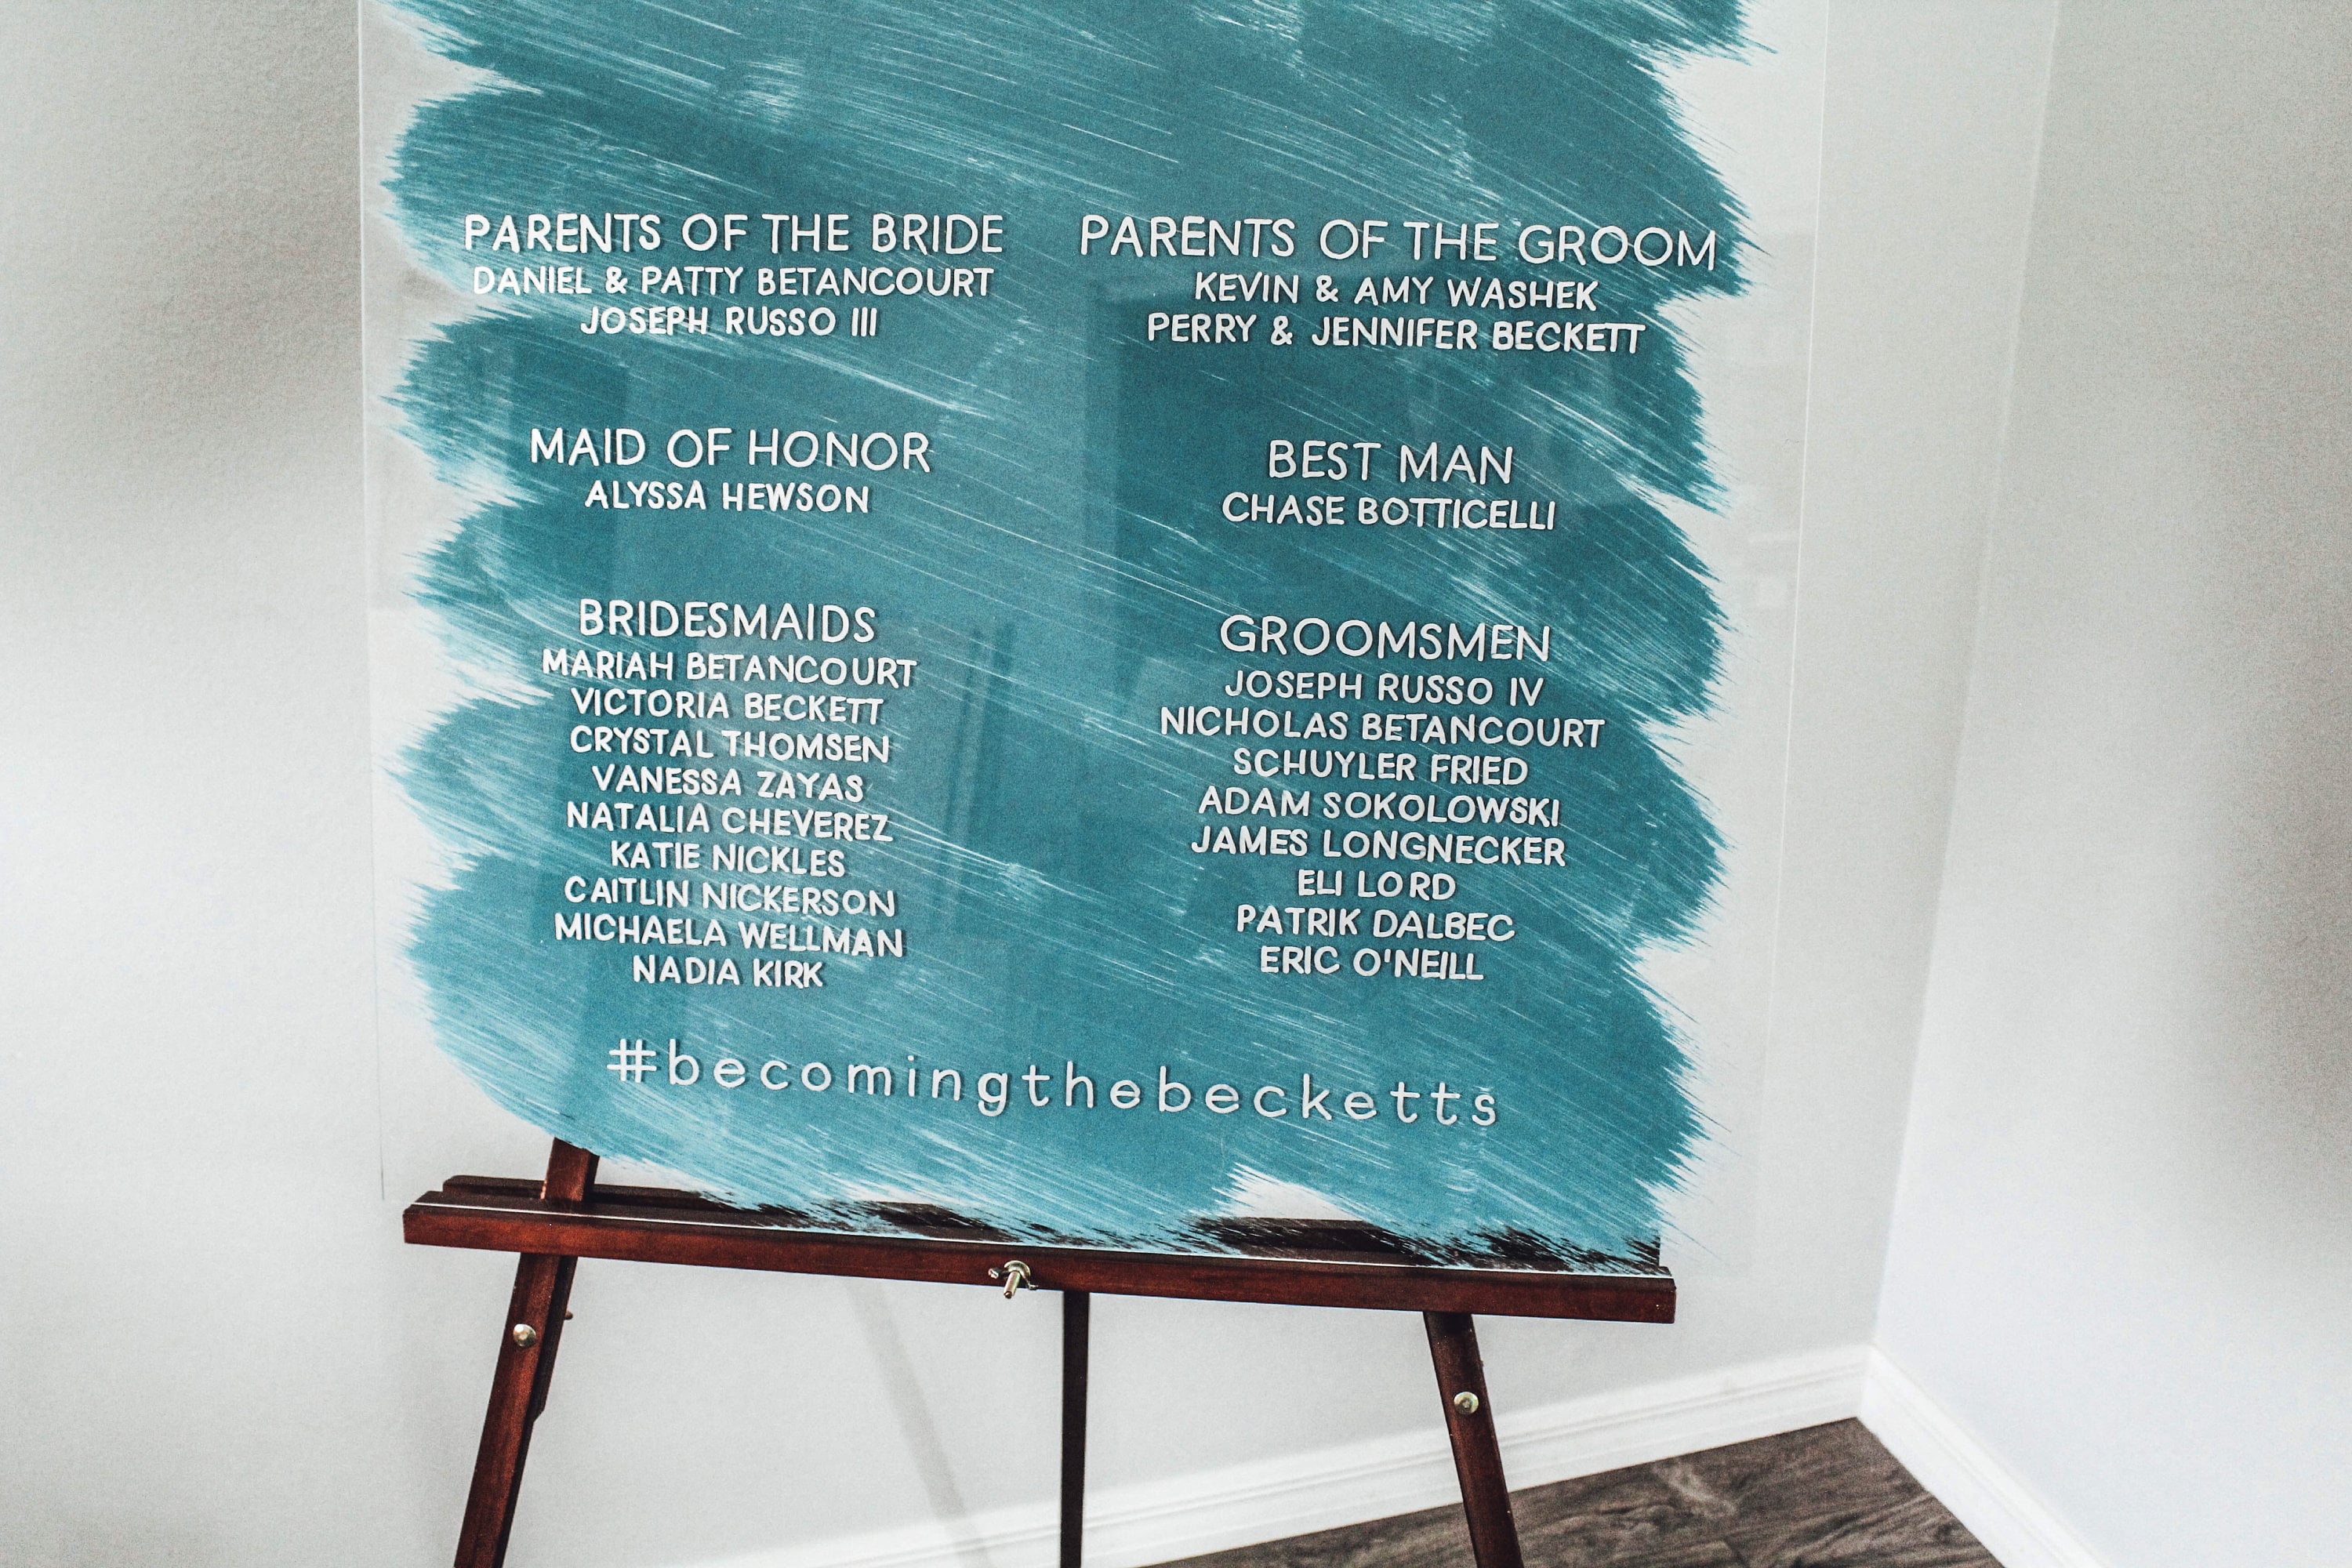 PARENTS OF THE BRIDE
DANIEL & PATTY BETANCOURT
JOSEPH RUSSO III
PARENTS OF THE GROOM
KEVIN & AMY WASHEK
PERRY & JENNIFER BECKETT
MAID OF HONOR
ALYSSA HEWSON
BEST MAN
CHASE BOTTICELLI
BRIDESMAIDS
MARIAH BETANCOURT
VICTORIA BECKETT
CRYSTAL THOMSEN
VANESSA ZAYAS
NATALIA CHEVEREZ
KATIE NICKLES
CAITLIN NICKERSON
MICHAELA WELLMAN
NADIA KIRK
GROOMSMEN
JOSEPH RUSSO IV
NICHOLAS BETANCOURT
SCHUYLER FRIED
ADAM SOKOLOWSKI
JAMES LONGNECKER
ELI LORD
PATRIK DALBEC
ERIC O'NEILL
#becomingthebecketts